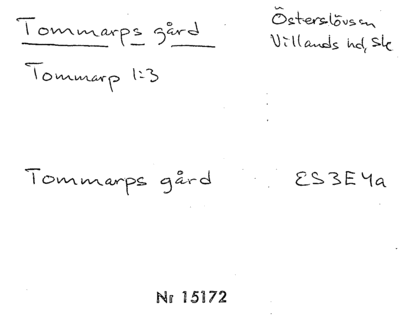 Tommarps gård
Österslövs sn
Villands hd, Sk
Tommarp 1:3
Tommarps gård
ES3E4a
Nr 15172